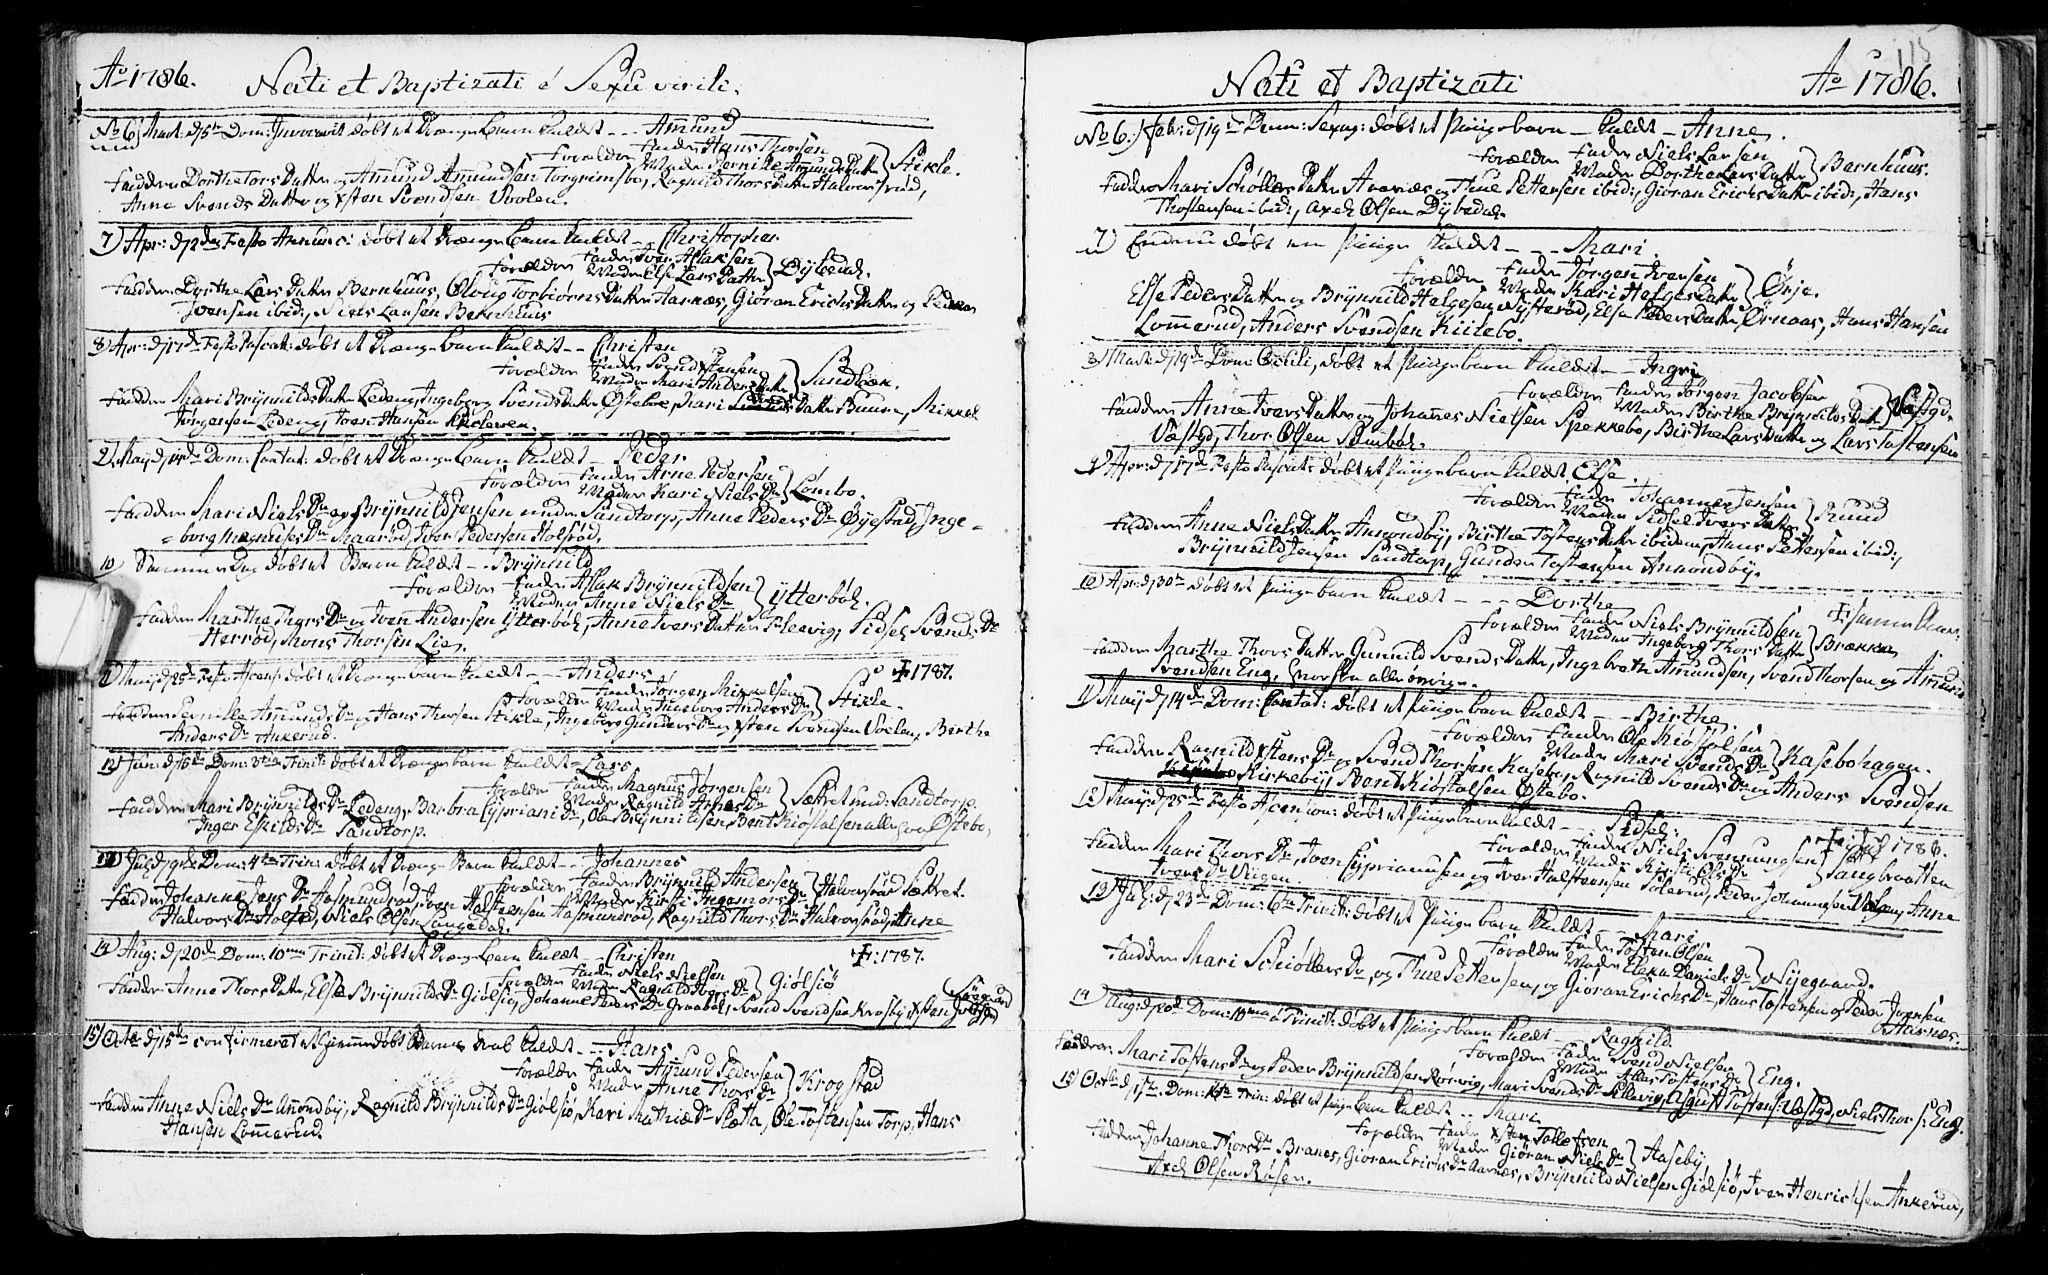 Ao 1786. Nati et Baptizati é Sexu virili.
No 6) Mart: d 5te Dom: Invocavit døbt et Drenge Barn kaldt - - - Amund
Forældre Fader Hans Thorsen
Moder Pernille Amunds Datter } Stikle.
Faddere Dorthe Tors Datter og Amund Amundsen Torgrimsbye, Ragnild Thors Datter Halvorsrud,
Anne Svends Datter og Østen Svendsen Voolen.
7) Apr: d 2den Festo Annunc: døbt et Drenge Barn kaldt - - Christopher
Forældre Fader Iver Aslaksen
Moder Else Lars Datter } Dybedal.
Faddere Dorthe Lars Datter Bernhuus, Oloug Torbiørns Datter Harnæs, Giøran Erichs Datter og Peder
Iversen ibid:, Niels Larsen Bernhuus
8) Apr: d 17de Festo Pascat: døbt et Drenge barn kaldt - - Christen
Forældre Fader Svend Østensen
Moder Mari Anders Datter } Sandbæk.
Faddere Mari Brynnilds Datter Ledeng, Ingeborg Svends Datter Østeboe, Mari Datter Buure, Mikkel
Jørgensen Ledeng, Iven Hansen
9) May d 14de Dom: Cantat: døbt et Drenge Barn kaldt - Peder
Forældre Fader Arne Pedersen
Moder Kari Niels Dr } Lombo.
Faddere Mari Niels Dr og Brynnild Jensen under Sandtorp, Anne Peders Dr Øyestad, Inge =
= borg Magnuses Dr Maarød, Iver Pedersen Holsrød.
10 Samme Dag døbt et Barn kaldt - - Brynnild
Forældre Fader Aslak Brynnildsen
Moder Anne Niels Dr } Ytterbøl.
Faddere Marthe Thors Dr og Iven Andersen Ytterbøl, Anne Ivers Datter Kleevig, Sidsel Svends Dr
Herrød, Mons Thorsen Lie.
11) May d 25de Festo Ascens: døbt et Drenge barn kaldt - - - Anders ✝ 1787.
Forældre Fader Jørgen Mikkelsen
Moder Ingeborg Anders Dr } Stikle.
Faddere Pernille Amunds Dr og Hans Thorsen Stikle, Ingeborg Gunders Dr og Østen Svendsen Voelen, Birthe
Anders Dr Ankerud.
12) Jun: d Dom: 3tia Trinit: døbt et Drenge barn kaldt - Lars
Forældre Fader Magnus Jørgensen
Moder Ragnild Arnes Dr } Sættret und: Sandtorp.
Faddere Mari Brynnilds Dr Ledeng, Barbra Cypriani Dr, Ole Brynnildsen, Bent Kiøstolsen alle paa Østebo,
Inger Eskilds Dr Sandtorp.
13) July d 9de Dom: 4ta Trin: døbt et Drenge Barn kaldt - - Johannes
Forældre Fader Brynnild Andersen
Moder Kirsti Ingemors Dr } Halvorsrud Sættret.
Faddere Johanne Jens Dr Hasmundrød, Iven Halstensen Hasmundrød, Ragnild Thors Dr Halvorsrød, Anne
Halvors Dr Holfød, Niels Olsen Langedal.
14) Aug: d 20de Dom: 10ma Trinit: døbt et Drenge Barn kaldt - - Christen ✝: 1787.
Forældre Fader Niels Nielsen
Moder Ragnild Ivers Dr } Giølsiø
Faddere Anne Thors Datter, Else Brynnilds Dr Giølsiø, Johanne Peders Dr Graabøl, Svend Svendsen Krosby, Østen Iversen
15) Octo: d 15de confirmeret et hjemmedøbt Barns Daab kaldt - - Hans
Forældre Fader Amund Pedersen
Moder Anne Thors Dr } Krogstad
Faddere Anne Niels Dr Amondby, Ragnild Brynnilds Dr Giølsiø, Kari Mathiæ Dr Sletta, Ole Tostensen Torp, Hans
Hansen Lommerud.
115
Nati et Baptizati Ao 1786.
No 6.) Feb: d 19de Dom: Sexag: døbt et Pigebarn - kaldt - Anne.
Forældre Fader Niels Larsen
Moder Dorthe Lars Datter } Bernhuus.
Faddere Mari Schøllers Datter Aarnæs og Thue Pettersen ibid:, Giøran Erichs Datter ibid:, Hans
Thostensen ibid:, Axel Olsen Dybedal.
7) Endnu døbt en Pige kaldt - - - Mari.
Forældre Fader Jørgen Iversen
Moder Kari Helges Datter } Ørje.
Else Peders Datter og Brynnild Helgesen Nysterød, Else Peders Datter Ørnaas, Hans Hansen
Lommerud, Anders Svendsen Kiitebo.
8) Mart: d 19de Dom: Oculi, døbt et Pigebarn kaldt - - Ingri
Forældre Fader Jørgen Jacobsen
Moder Birthe Brynnilds Datt } Væstgd.
Faddere Anne Ivers Datter og Johannes Nielsen Spekkebo, Birthe Lars Datter og Lars Tostensen
Væstgd, Thor Olsen Sombøl.
9) Apr: d 17de Festo Pascat: døbt et Pigebarn kaldt. Else.
Forældre Fader Johannes Jensen
Moder Sidsel Ivers Datter } Ruud
Faddere Anne Niels Datter Amondby, Birthe Tostens Datter ibidem, Hans Pettersen ibid:,
Brynnild Jensen Sandtorp, Gunder Tostensen Amondbye.
10) Apr: d 30te døbt et Pigebarn kaldt - - - Dorthe ✝: samme Aar.
Forældre Fader Niels Brynnildsen
Moder Ingeborg Thors Datter } Brækka
Faddere Marthe Thors Datter Gunnild Svends Datter, Ingebreth Amundsen, Svend Thorsen og Amund
Svendsen Eng,
11) May d 14de Dom: Cantat: døbt et Pigebarn kaldt - - Birthe.
Forældre Fader Ole Kiøstolsen
Moder Mari Svends Dr } Kasebohagen.
Faddere Ragnild Østens Dr og Svend Thorsen Kasebo, Ragnild Svends Dr og Anders Svendsen
Kirkeby, Bent Kiøstolsen Østebo.
12) May d 25de Festo Ascension: døbt et Pigebarn kaldt - Sidsel. ✝ 1786.
Forældre Fader Niels Svennungsen
Moder Kirsti Ols Dr } Langbraatten
Faddere Mari Thors Dr, Iven Cyprianusen og Iver Halstensen Solerud, Peder Johannesen Viigen, Anne
Ivers Dr Viigen.
13) July d 23de Dom: 6ta Trinit: døbt et Pigebarn kaldt - - Mari
Forældre Fader Tosten Olsen
Moder Elexa Daniels Dr } Nyegaard.
Faddere Mari Schiøllers Dr, og Thue Pettersen, og Giøran Erichs Dr, Hans Tostensen og Peder Iversen
Harnæs.
14 Aug: d 20de Dom: 10ma á Trinit: døbt et Pigebarn kaldt - - Ragnild.
Forældre Fader Svend Nielsen
Moder Tostens Dr } Eng.
Faddere Mari Tostens Dr og Peder Brynnildsen Rørvig, Mari Svends Dr Kleevig, Asgut Tostens: Væstgd, Niels Thors: Eng.
15) Octbr d 1ste Dom: 16ta Trin: døbt et Pigebarn kaldt - - - Mari
Forældre Fader Østen Tollefsen
Moder Giøran Niels Dr } Haseby
Faddere Johanne Thors Dr Branes, Giøran Erichs Dr Aarnæs, Brynnild Nielsen Giølsiø, Iver Henrichsen Ankerud,
Axel Olsen Røsen.